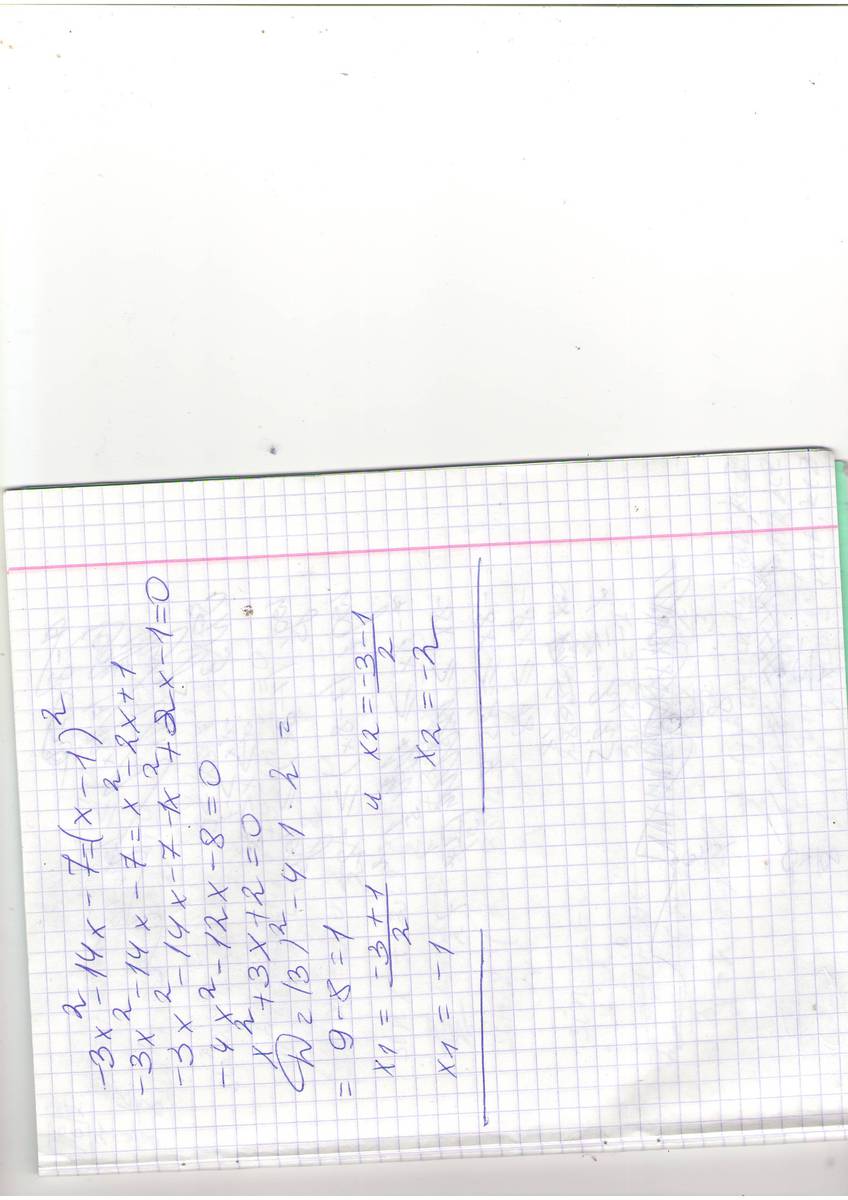 -3x²-14x-7=(x-1)²
-3x²-14x-7=x²-2x+1
-3x²-14x-7-1x²+2x-1=0
-4x²-12x-8=0
x²+3x+2=0
D=(3)²-4·1·2=
=9-8=1
x1=(-3+1)/2 и x2=(-3-1)/2
x1=-1 x2=-2